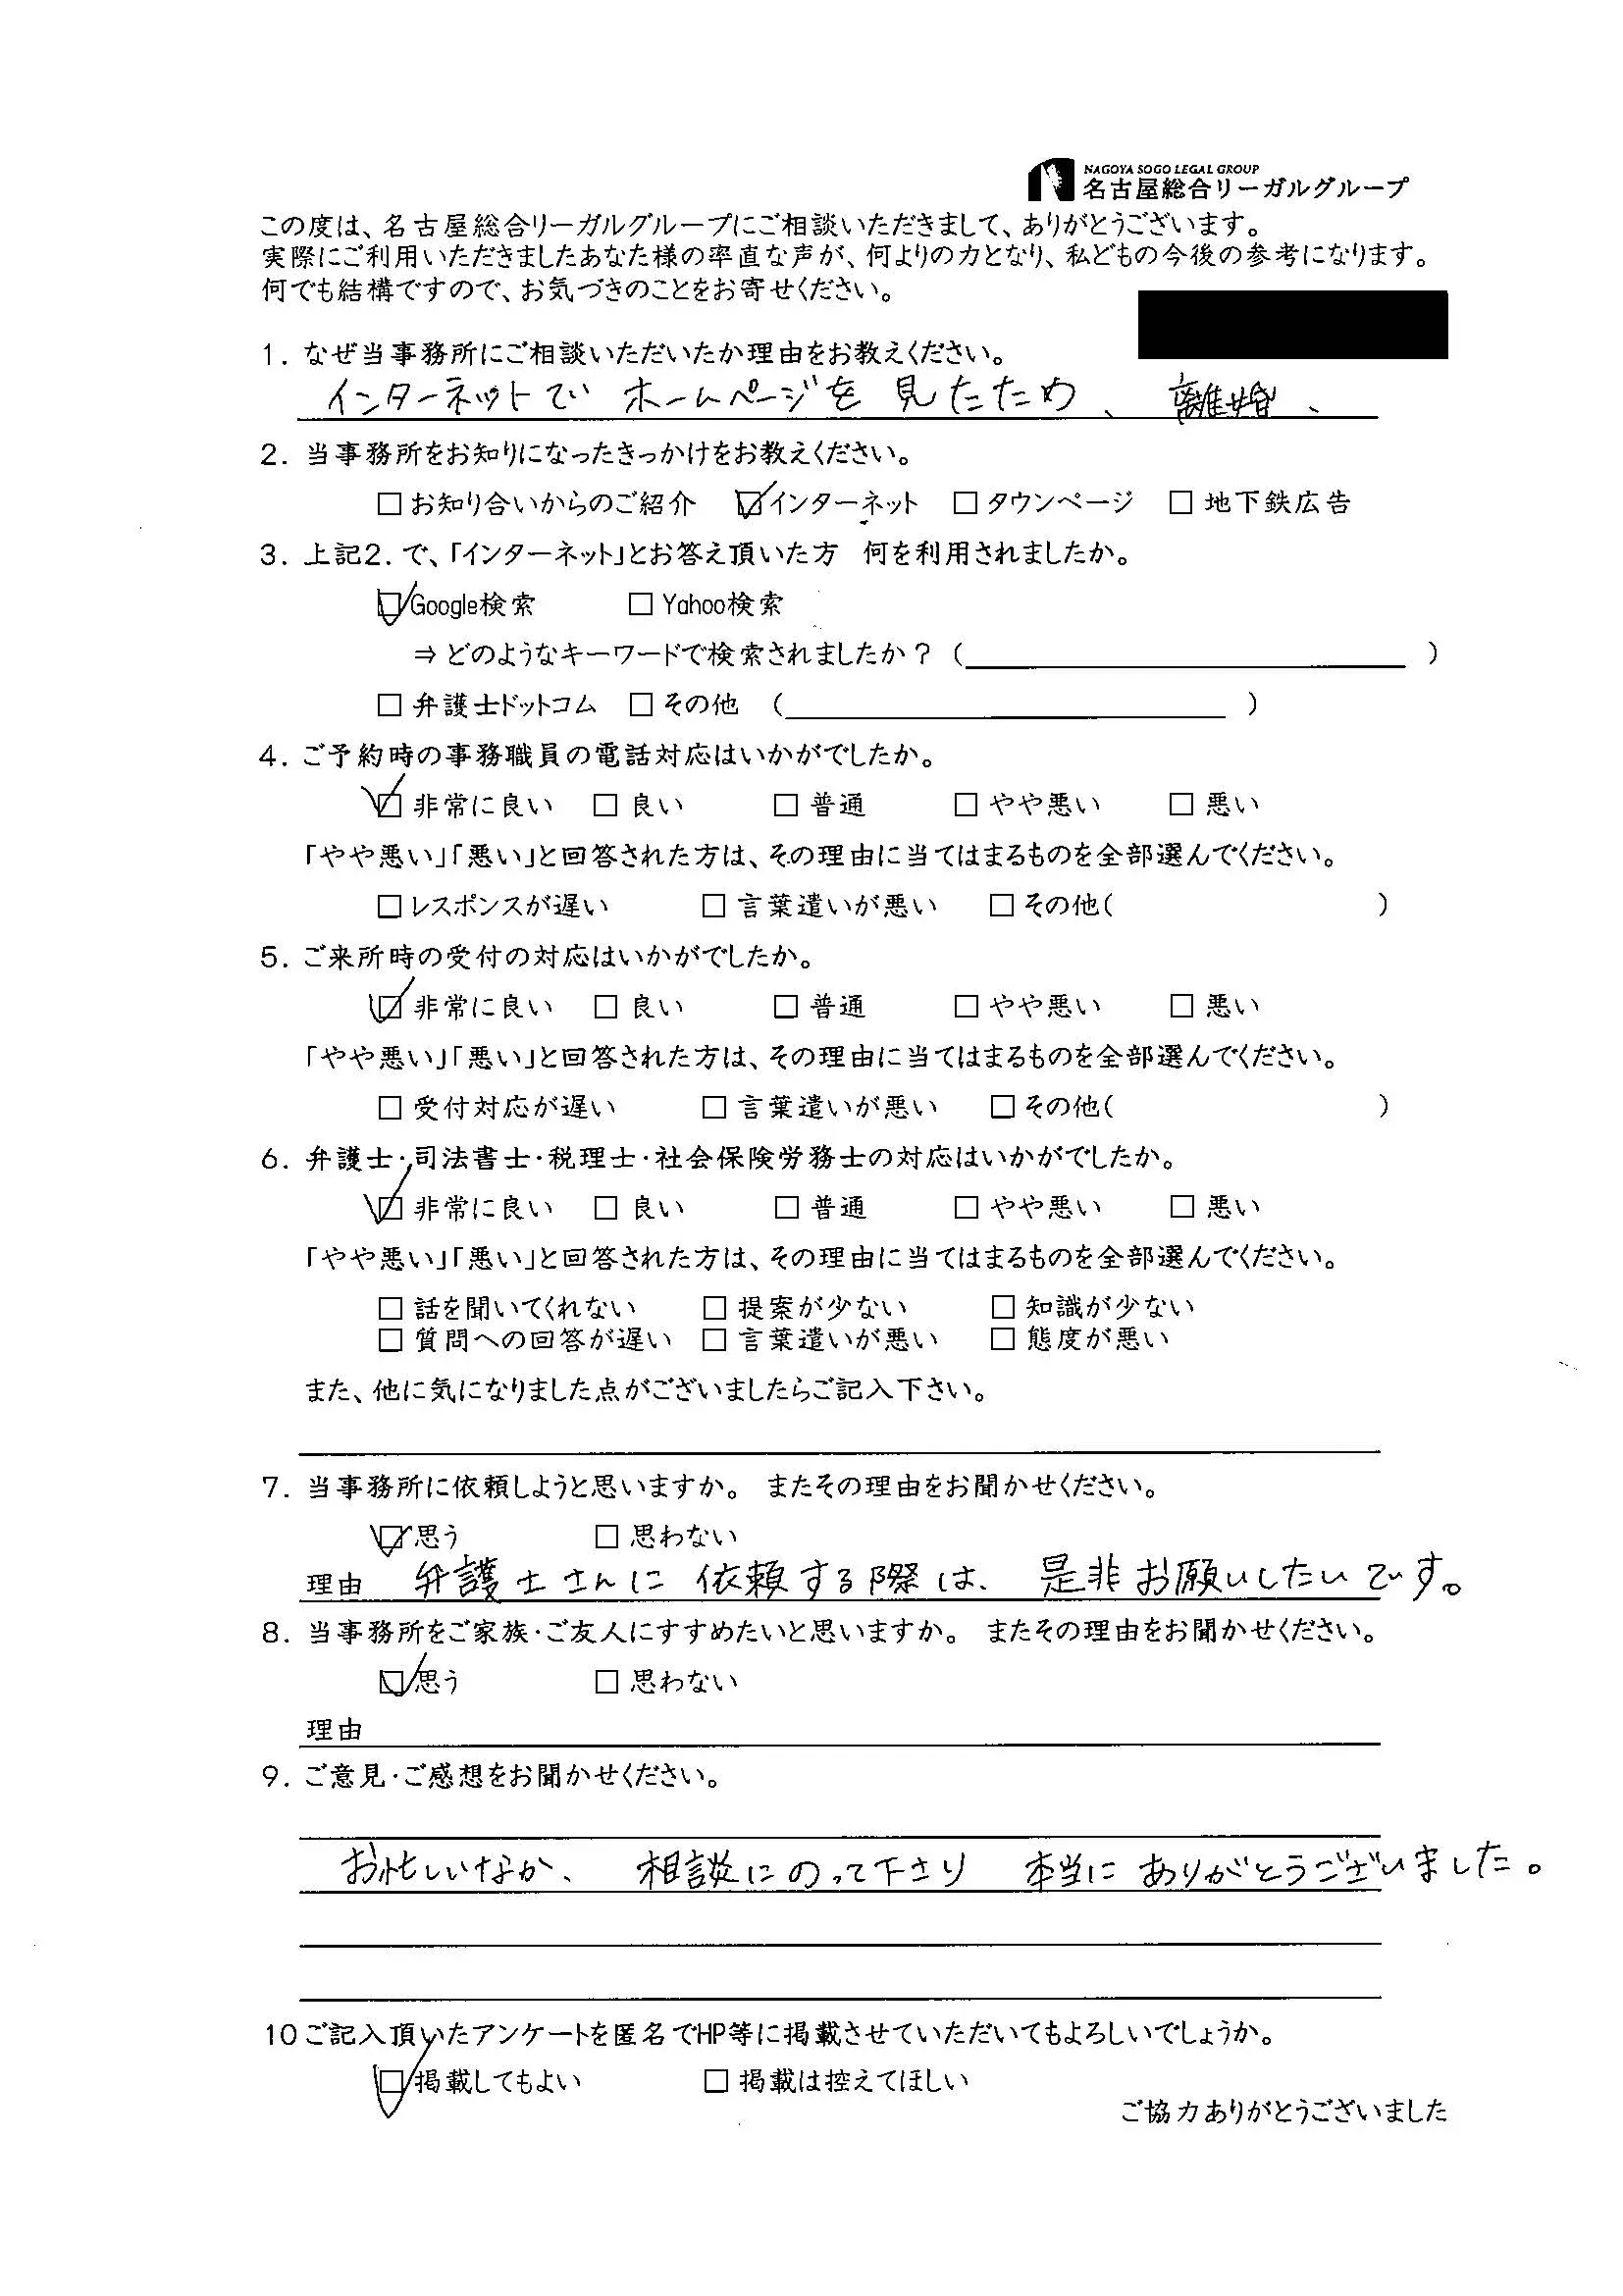 NAGOYA SOGO LEGAL GROUP
名古屋総合リーガルグループ
この度は、名古屋総合リーガルグループにご相談いただきまして、ありがとうございます。
実際にご利用いただきましたあなた様の率直な声が、何よりの力となり、私どもの今後の参考になります。
何でも結構ですので、お気づきのことをお寄せください。
1. なぜ当事務所にご相談いただいたか理由をお教えください。
インターネットで ホームページを 見たため、離婚、
2. 当事務所をお知りになったきっかけをお教えください。
□ お知り合いからのご紹介 ☑ インターネット □ タウンページ □ 地下鉄広告
3. 上記2. で、「インターネット」とお答え頂いた方 何を利用されましたか。
☑ Google検索 □ Yahoo検索
⇒ どのようなキーワードで検索されましたか? ( )
□ 弁護士ドットコム □ その他 ( )
4. ご予約時の事務職員の電話対応はいかがでしたか。
☑ 非常に良い □ 良い □ 普通 □ やや悪い □ 悪い
「やや悪い」「悪い」と回答された方は、その理由に当てはまるものを全部選んでください。
□ レスポンスが遅い □ 言葉遣いが悪い □ その他( )
5. ご来所時の受付の対応はいかがでしたか。
☑ 非常に良い □ 良い □ 普通 □ やや悪い □ 悪い
「やや悪い」「悪い」と回答された方は、その理由に当てはまるものを全部選んでください。
□ 受付対応が遅い □ 言葉遣いが悪い □ その他( )
6. 弁護士・司法書士・税理士・社会保険労務士の対応はいかがでしたか。
☑ 非常に良い □ 良い □ 普通 □ やや悪い □ 悪い
「やや悪い」「悪い」と回答された方は、その理由に当てはまるものを全部選んでください。
□ 話を聞いてくれない □ 提案が少ない □ 知識が少ない
□ 質問への回答が遅い □ 言葉遣いが悪い □ 態度が悪い
また、他に気になりました点がございましたらご記入下さい。
7. 当事務所に依頼しようと思いますか。 またその理由をお聞かせください。
☑ 思う □ 思わない
理由 弁護士さんに 依頼する際は、是非お願いしたいです。
8. 当事務所をご家族・ご友人にすすめたいと思いますか。 またその理由をお聞かせください。
☑ 思う □ 思わない
理由
9. ご意見・ご感想をお聞かせください。
お忙しいなか、相談にのって下さり 本当に ありがとうございました。
10 ご記入頂いたアンケートを匿名でHP等に掲載させていただいてもよろしいでしょうか。
☑ 掲載してもよい □ 掲載は控えてほしい
ご協力ありがとうございました